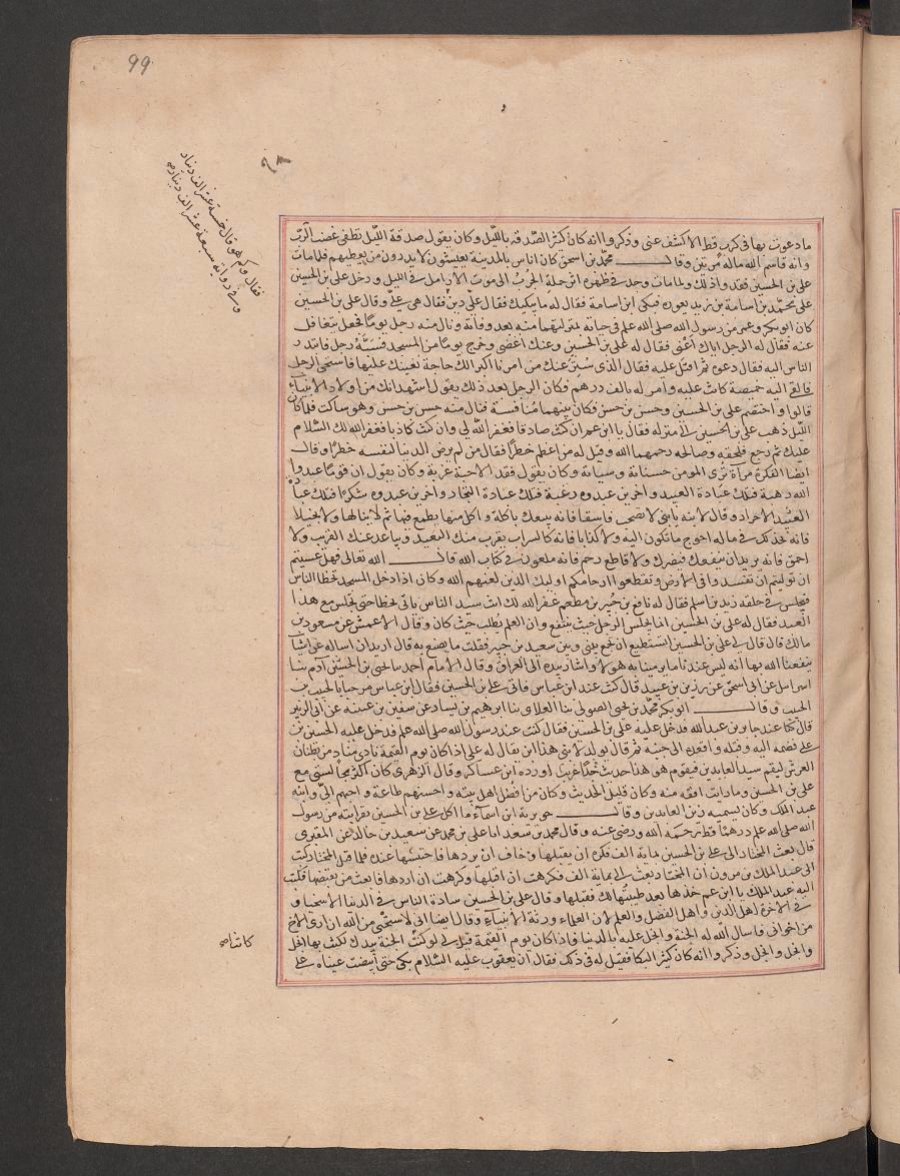 99
فقال وكم هو قال خمسة عشر الف دينار
وفي رواية سبعة عشر الف دينار صح
ما دعوت بها في كرب قط الا كشف عني وذكروا انه كان كثير الصدقه بالليل وكان يقول صدقة الليل تطفئ غضب الرب
وانه قاسم الله ماله مرتين وقال محمد بن اسحق كان اناس بالمدينة يعيشون لا يدرون من يعطيهم فلما مات
علي بن الحسين فقدوا ذلك ولما مات وجد في ظهره اثر حمله الجرب الى بيوت الارامل في الليل ودخل علي بن الحسين
على محمد بن اسامة بن زيد يعوده فبكى ابن اسامة فقال له ما يبكيك فقال علي دين فقال هي علي وقال علي بن الحسين
كان ابو بكر وعمر من رسول الله صلى الله عليه وسلم في حياته بمنزلتهما منه بعد وفاته ونال منه رجل يوما فجعل يتغافل
عنه فقال له الرجل اياك اعني فقال له علي بن الحسين وعنك اغضي وخرج يوما من المسجد فسبه رجل فابتدر
الناس اليه فقال دعوه ثم اقبل عليه فقال الذي ستر عنك من امرنا اكبر الك حاجة نعينك عليها فاستحى الرجل
فالقى اليه خميصة كانت عليه وامر له بالف درهم فكان الرجل بعد ذلك يقول اشهد انك من اولاد الانبياء
قالوا واختصم علي بن الحسين وحسن بن حسن فكان بينهما منافسة فنال منه حسن بن حسن وهو ساكت فلما كان
الليل ذهب علي بن الحسين الى منزله فقال يا ابن عم ان كنت صادقا فغفر الله لي وان كنت كاذبا فغفر الله لك السلام
عليك ثم رجع فلحقه وصالحه رحمهما الله وقيل له من اعظم خطرا فقال من لم يرض الدنيا لنفسه خطرا وقال
ايضا الفكرة مرآة تري المومن حسناته وسياته وكان يقول فقد الاحبة غربة وكان يقول ان قوما عبدوا
الله رهبة فتلك عبادة العبيد واخرين عبدوه رغبة فتلك عبادة التجار واخرين عبدوه شكرا فتلك عبادة
العبيد الاحرار وقال لابنه يا بني لا تصحب فاسقا فانه يبيعك باكلة واقل منها يطمع فيها ثم لا ينالها ولا بخيلا
فانه يخذلك في ماله احوج ما تكون اليه ولا كذابا فانه كالسراب يقرب منك البعيد ويباعد عنك القريب ولا
احمق فانه يريد ان ينفعك فيضرك ولا قاطع رحم فانه ملعون في كتاب الله قال الله تعالى فهل عسيتم
ان توليتم ان تفسدوا في الارض وتقطعوا ارحامكم اوليك الذين لعنهم الله وكان اذا دخل المسجد تخطا الناس
فيجلس في حلقة زيد بن اسلم فقال له نافع بن جبير بن مطعم غفر الله لك انت سيد الناس تاتي تخطا حتى تجلس مع هذا
العبد فقال له علي بن الحسين انما يجلس الرجل حيث ينتفع وان العلم يطلب حيث كان وقال الاعمش عن مسعود بن
مالك قال قال لي علي بن الحسين اتستطيع ان تجمع بيني وبين سعيد بن جبير فقلت ما تصنع به قال اريد ان اساله عن اشيا
ينفعنا الله بها انه ليس عندنا ما يرمينا به هؤلاء واشار بيده الى العراق وقال الامام احمد ثنا يحيى بن آدم ثنا
اسرائيل عن ابي اسحق عن رزين بن عبيد قال كنت عند ابن عباس فاتى علي بن الحسين فقال ابن عباس مرحبا بالحبيب بن
الحبيب وقال ابو بكر محمد بن يحيى الصولي ثنا العلاي ثنا ابراهيم بن بشار عن سفين بن عيينه عن ابي الزبير
قال كنا عند جابر بن عبد الله فدخل عليه علي بن الحسين فقال كنت عند رسول الله صلى الله عليه وسلم فدخل عليه الحسين بن
علي فضمه اليه وقبله واقعده الى جنبه ثم قال يولد لابني هذا ابن يقال له علي اذا كان يوم القيمة نادى مناد من بطنان
العرش ليقم سيد العابدين فيقوم هو هذا حديث غريب جدا اورده ابن عساكر وقال الزهري كان اكثر مجالستي مع
علي بن الحسين وما رايت افقه منه وكان قليل الحديث وكان من افضل اهل بيته واحسنهم طاعة واحبهم الى وابنه
عبد الملك وكان يسميه زين العابدين وقال جويرية ابن اسمآء ما اكل علي بن الحسين بقرابته من رسول
الله صلى الله عليه وسلم درهما قط رحمه الله ورضي عنه وقال محمد بن سعد انا علي بن محمد عن سعيد بن خالد عن المقبري
قال بعث المختار الى علي بن الحسين بماية الف فكره ان يقبلها وخاف ان يردها فاحتبسها عنده فلما قتل المختار كتب
الى عبد الملك بن مروان ان المختار بعث الي بماية الف فكرهت ان اقبلها وكرهت ان اردها فابعث من يقبضها فكتب
اليه عبد الملك يا ابن عم خذها بعد طيبتها لك فقبلها وقال علي بن الحسين سادة الناس في الدنيا الاسخيا و
في الاخرة اهل الدين واهل الفضل والعلم لان العلماء ورثة الانبياء وقال ايضا اني لا ستحيي من الله ان ارى الاخ
من اخواني فاسال الله له الجنة وابخل عليه بالدنيا فاذا كان يوم القيمة قيل لي لو كنت الجنة بيدك لكنت بها ابخل
وابخل وابخل وذكروا انه كان كثير البكا فقيل له في ذلك فقال ان يعقوب عليه السلام بكى حتى ابيضت عيناه على
كانت صح